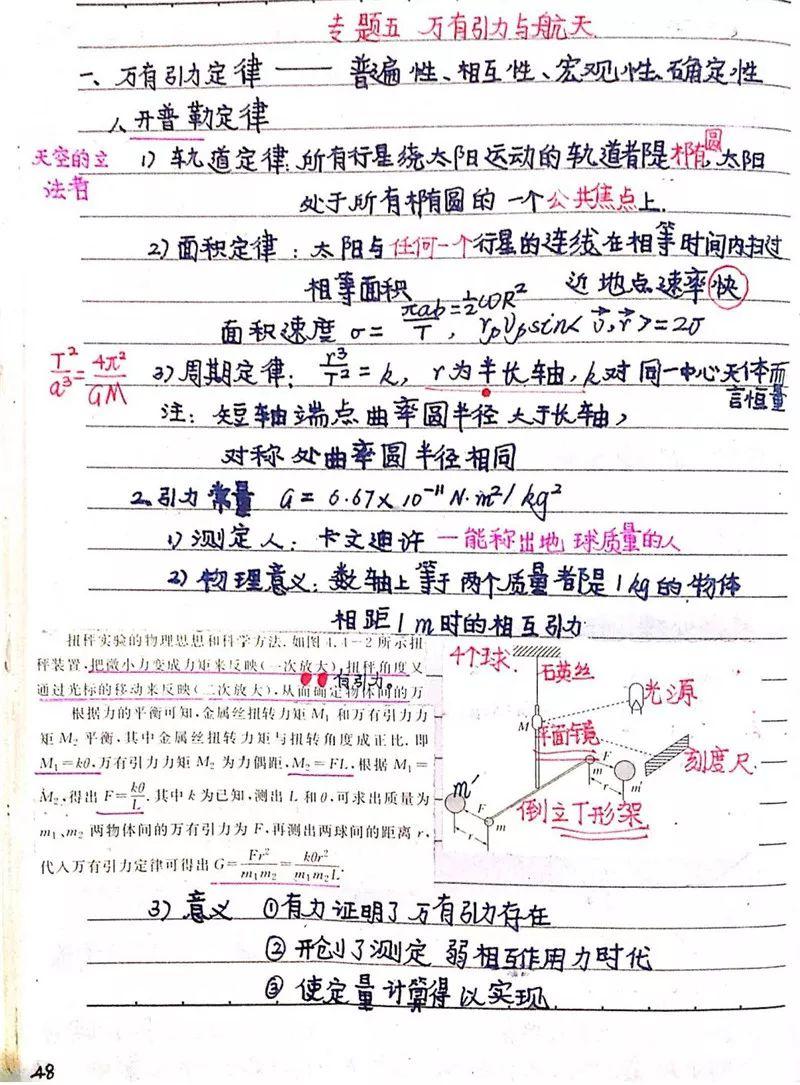 专题五 万有引力与航天
一、万有引力定律 —— 普遍性、相互性、宏观性、确定性
1、开普勒定律
天空的立法者
1) 轨道定律: 所有行星绕太阳运动的轨道都是椭圆, 太阳
处于所有椭圆的一个公共焦点上.
2) 面积定律: 太阳与任何一个行星的连线在相等时间内扫过
相等面积 近地点速率快
面积速度 σ = πab/T = 1/2 ωR², r_p v_p sin< v⃗, r⃗ > = 2σ
T²/a³ = 4π²/GM
3) 周期定律: r³/T² = k, r为半长轴, k对同一中心天体而言恒量
注: 短轴端点曲率圆半径大于长轴,
对称处曲率圆半径相同
2. 引力常量 G = 6.67×10⁻¹¹ N·m²/kg²
1) 测定人: 卡文迪许 —能称出地球质量的人
2) 物理意义: 数轴上等于两个质量都是1kg的物体
相距1m时的相互引力
扭秤实验的物理思想和科学方法. 如图4.4-2所示扭
秤装置, 把微小力变成力矩来反映(一次放大), 扭秤角度又
通过光标的移动来反映(二次放大), 从而确定物体间的万
有引力.
根据力的平衡可知, 金属丝扭转力矩M₁和万有引力力
矩M₂平衡, 其中金属丝扭转力矩与扭转角度成正比, 即
M₁=kθ, 万有引力力矩M₂为力偶距, M₂=FL, 根据M₁=
M₂, 得出F=kθ/L. 其中k为已知, 测出L和θ, 可求出质量为
m₁、m₂两物体间的万有引力为F, 再测出两球间的距离r,
代入万有引力定律可得出G=Fr²/m₁m₂=kθr²/m₁m₂L.
4个球.
石英丝
光源
M
平面镜
刻度尺
F
m
m'
m'
F
m
r
倒立丁形架
3) 意义 ①有力证明了万有引力存在
②开创了测定弱相互作用力时代
③使定量计算得以实现
48